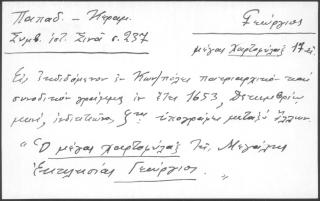 Παπαδ. - Κεραμ.
Γεώργιος
Συμβ. ἱστ. Σινᾶ σ. 237
μέγας Χαρτοφύλαξ 17 αἰ.
Εἰς ἐκδιδόμενον ἐν Κων/πόλει πατριαρχικὸν καὶ
συνοδικὸν γράμμα ἐν ἔτει 1653, Δεκεμβρίῳ
μηνί, ἰνδικτιῶνος ζης ὑπογράφει μεταξὺ ἄλλων.
"Ὁ μέγας χαρτοφύλαξ τῆς Μεγάλης
Ἐκκλησίας Γεώργιος."